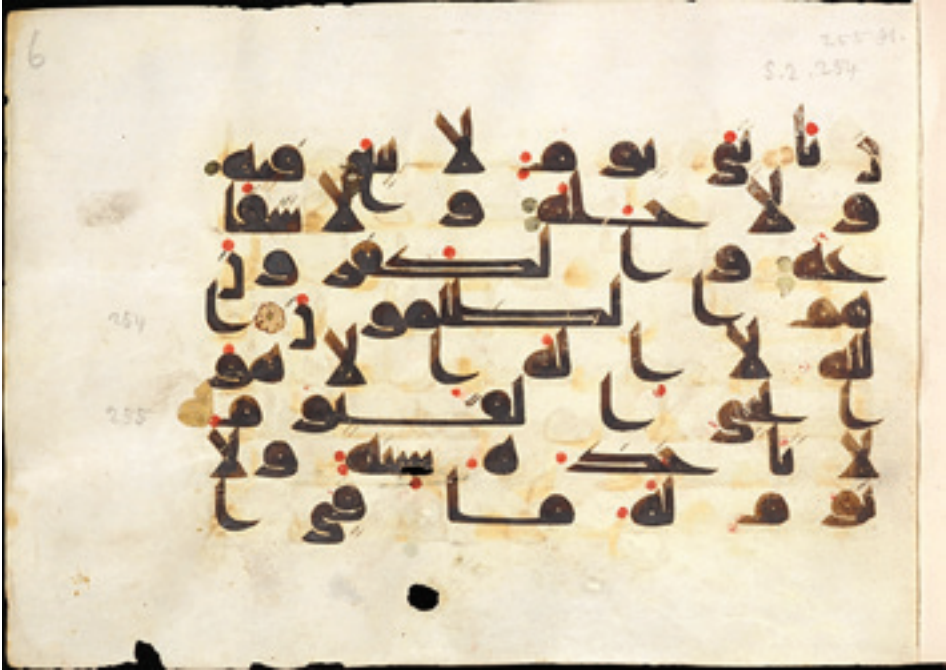 6
S.2.254
ن ياتي يوم لا بيع فيه
ولا خلة ولا شفا
عة والكفرون
هم الظلمون ا
254
لله لا اله الا هو
الحي القيوم
255
لا تاخذه سنة ولا
نوم له ما في ا